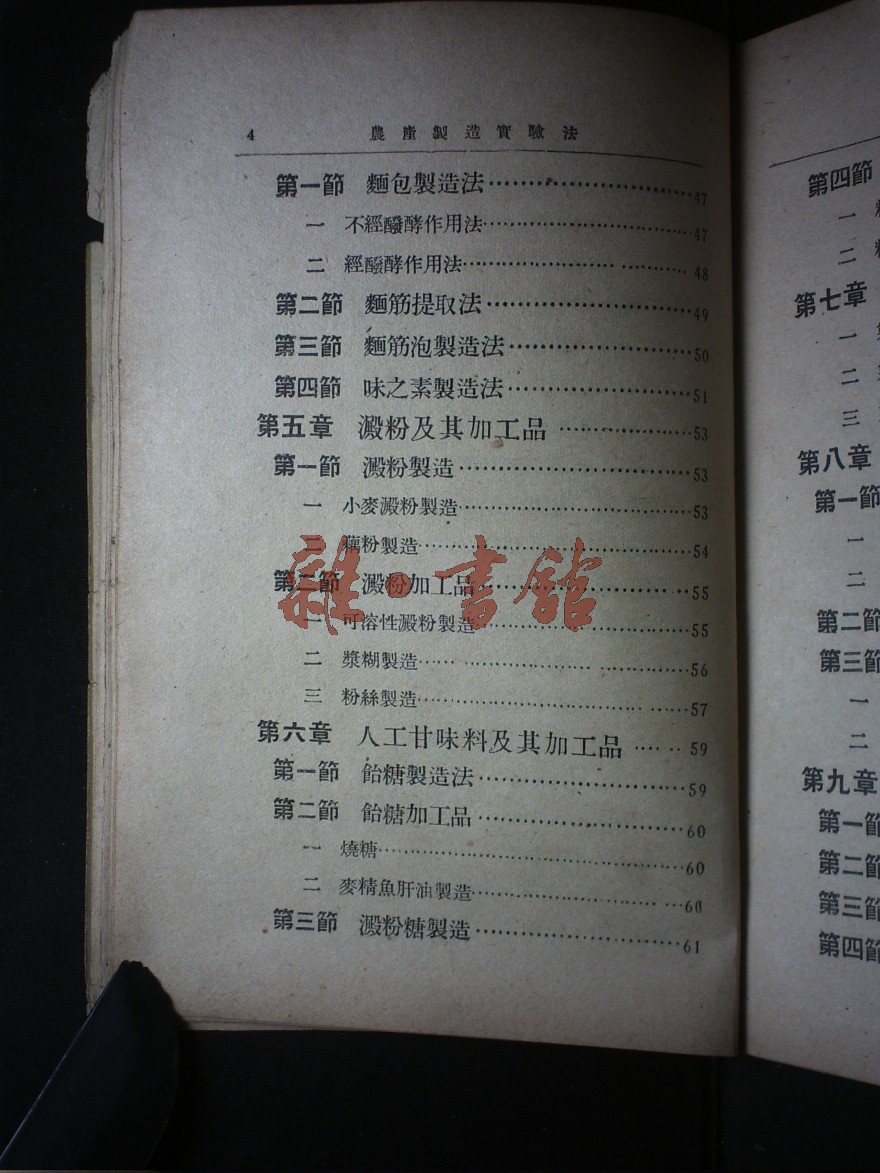 4 農產製造實驗法
第一節 麵包製造法……………………47
一 不經醱酵作用法……………………47
二 經醱酵作用法……………………48
第二節 麵筋提取法……………………49
第三節 麵筋泡製造法……………………50
第四節 味之素製造法……………………51
第五章 澱粉及其加工品……………53
第一節 澱粉製造……………………53
一 小麥澱粉製造……………………53
二 藕粉製造……………………54
第二節 澱粉加工品……………………55
一 可溶性澱粉製造……………………55
二 漿糊製造……………………56
三 粉絲製造……………………57
第六章 人工甘味料及其加工品……59
第一節 飴糖製造法……………………59
第二節 飴糖加工品……………………60
一 燒糖……………………60
二 麥精魚肝油製造……………………60
第三節 澱粉糖製造……………………61
雜·書館
第四節
一
二
第七章
一
二
三
第八章
第一節
一
二
第二節
第三節
一
二
第九章
第一節
第二節
第三節
第四節